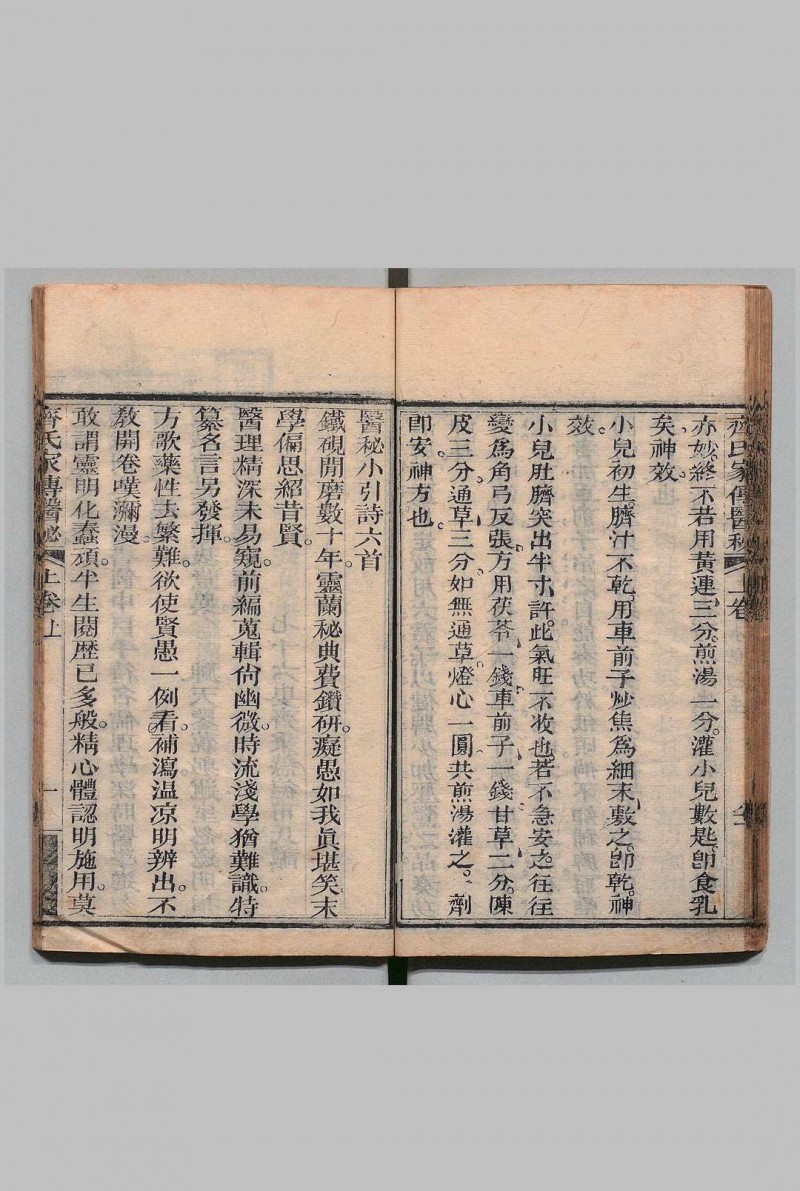 齊氏家傳醫秘 上卷
亦妙。終不若用黃連三分。煎湯一分。灌小兒數匙。卽食乳
矣。神效。
小兒初生。臍汁不乾。用車前子炒焦爲細末。敷之。卽乾。神
效。
小兒肚臍突出半寸許。此氣旺不收也。若不急安之。往往
變爲角弓反張。方用茯苓一錢。車前子一錢。甘草二分。陳
皮三分。通草三分。如無通草。燈心一圓。共煎湯灌之。一劑
卽安。神方也。
醫秘小引詩六首
鐵硯開磨數十年。靈蘭秘典費鑽研。癡愚如我眞堪笑。末
學偏思紹昔賢。
醫理精深未易窺。前編蒐輯尙幽微。時流淺學猶難識。特
纂名言另發揮。
方歌藥性去繁難。欲使賢愚一例看。補瀉温凉明辨出。不
敎開卷嘆瀰漫。
敢謂靈明化蠢頑。半生閱歷已多般。精心體認明施用。莫
齊氏家傳醫秘 上卷上 一